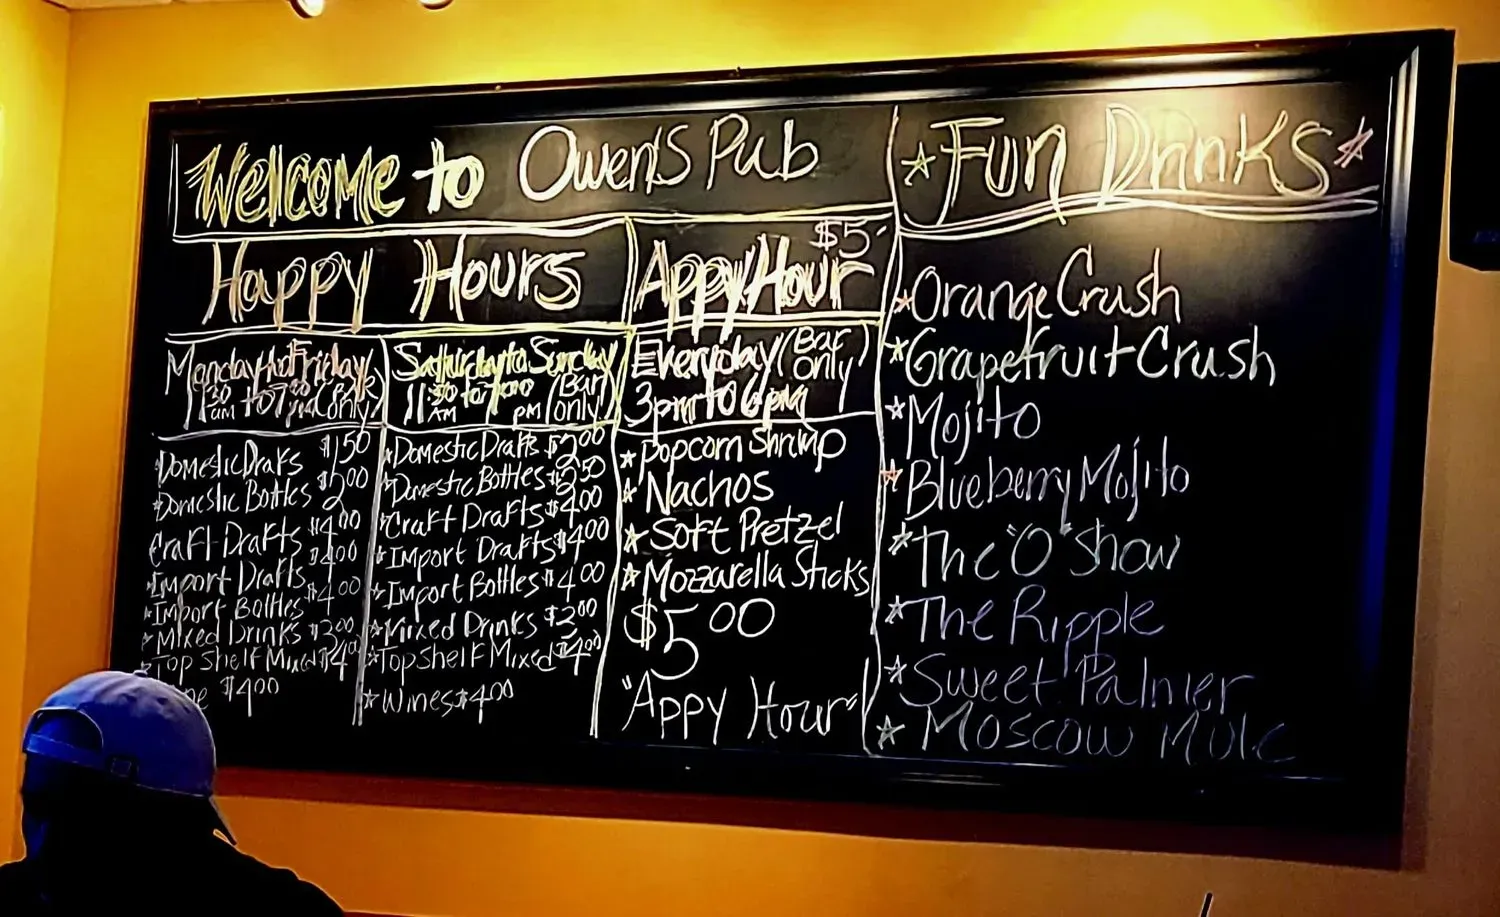 Welcome to Owen's Pub
Happy Hours
Monday to Friday
11:30 am to 7:00 pm (Bar only)
Domestic Drafts $1.50
Domestic Bottles $2.00
Craft Drafts $4.00
Import Drafts $4.00
Import Bottles $4.00
Mixed Drinks $3.00
Top Shelf Mixed $4.00
$4.00
Saturday to Sunday
11:30 AM to 7:00 PM (Bar only)
Domestic Drafts $2.00
Domestic Bottles $2.50
Craft Drafts $4.00
Import Drafts $4.00
Import Bottles $4.00
Mixed Drinks $3.00
Top Shelf Mixed $4.00
Wines $4.00
$5
Appy Hour
Everyday (Bar Only)
3pm to 6pm
Popcorn Shrimp
Nachos
Soft Pretzel
Mozzarella Sticks
$5.00
"Appy Hour"
Fun Drinks
Orange Crush
Grapefruit Crush
Mojito
Blueberry Mojito
The "O" Show
The Ripple
Sweet Palmer
Moscow Mule